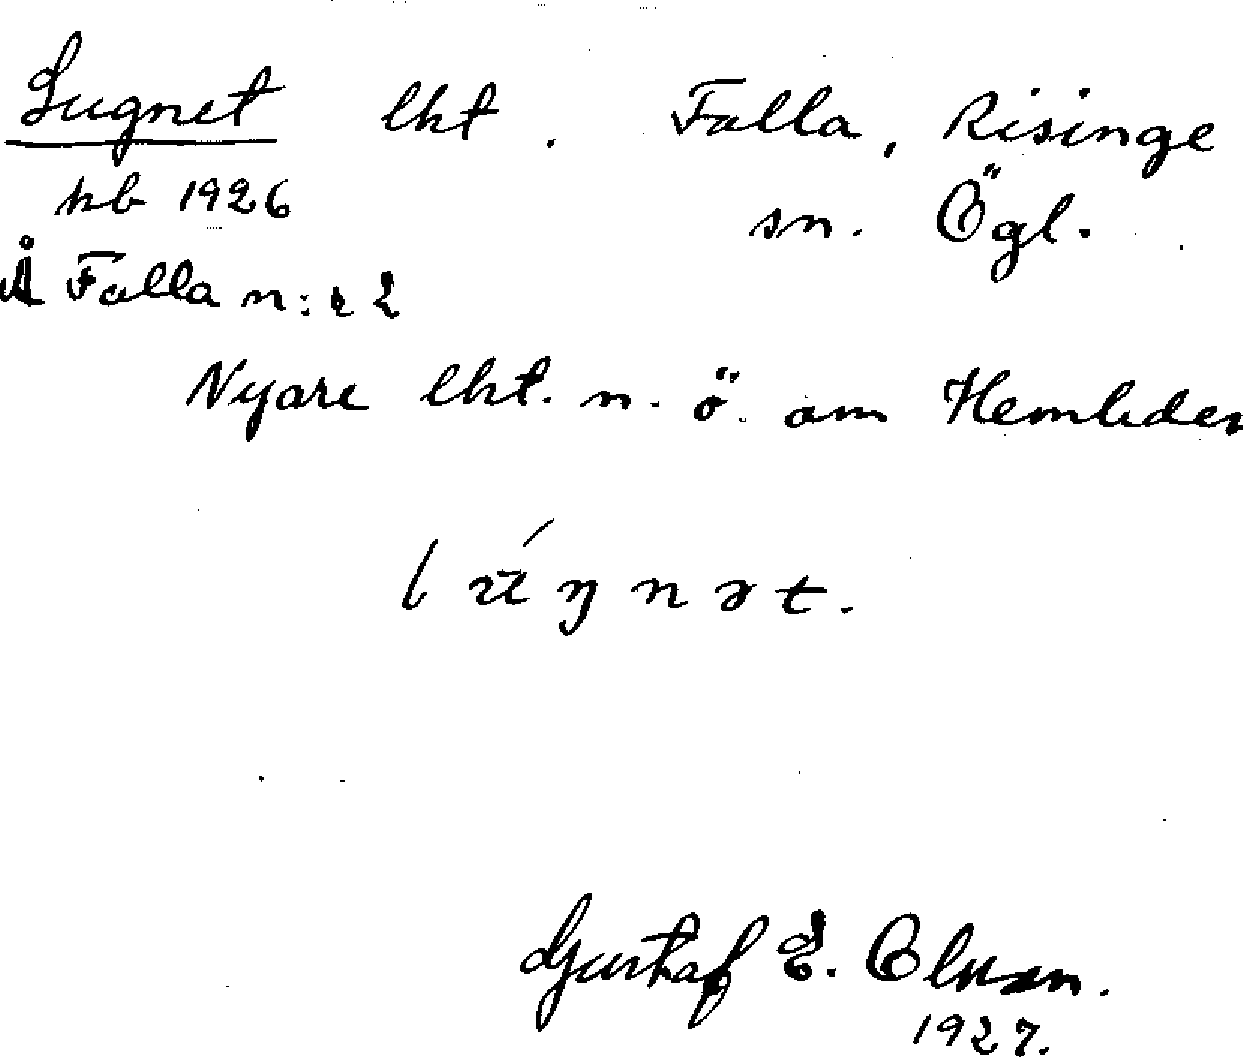 Lugnet lht. Falla, Risinge
hb 1926 sn. Ögl.
Å Falla n:r 2
Nyare lht. n. ö. om Hemleden
lʉ́ŋnət.
Gustaf E. Olsson.
1927.